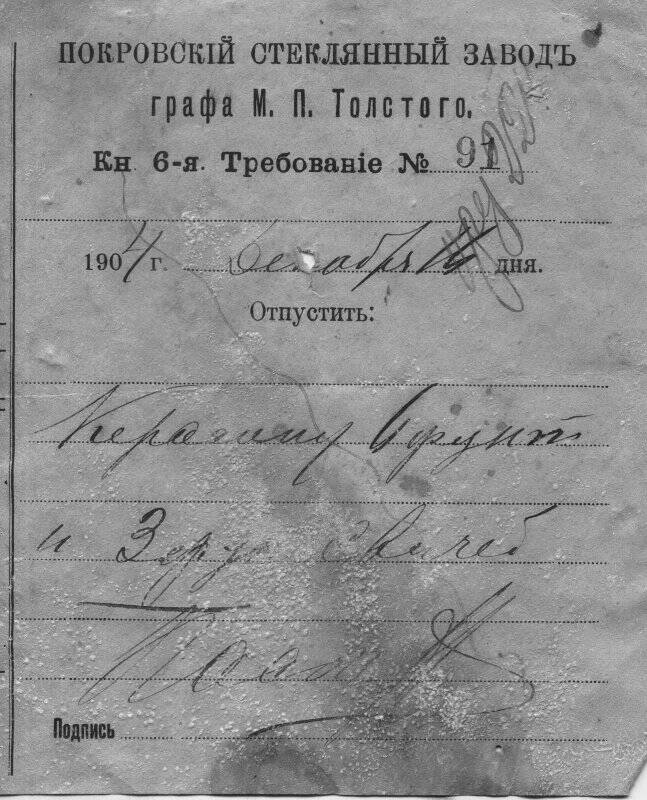 ПОКРОВСКІЙ СТЕКЛЯННЫЙ ЗАВОДЪ
графа М. П. Толстого.
Кн 6-я. Требованіе № 91
1904 г. Декабря 14 дня.
Отпустить:
Керосину 1 фунт
и 3 фу свичей
Подпись